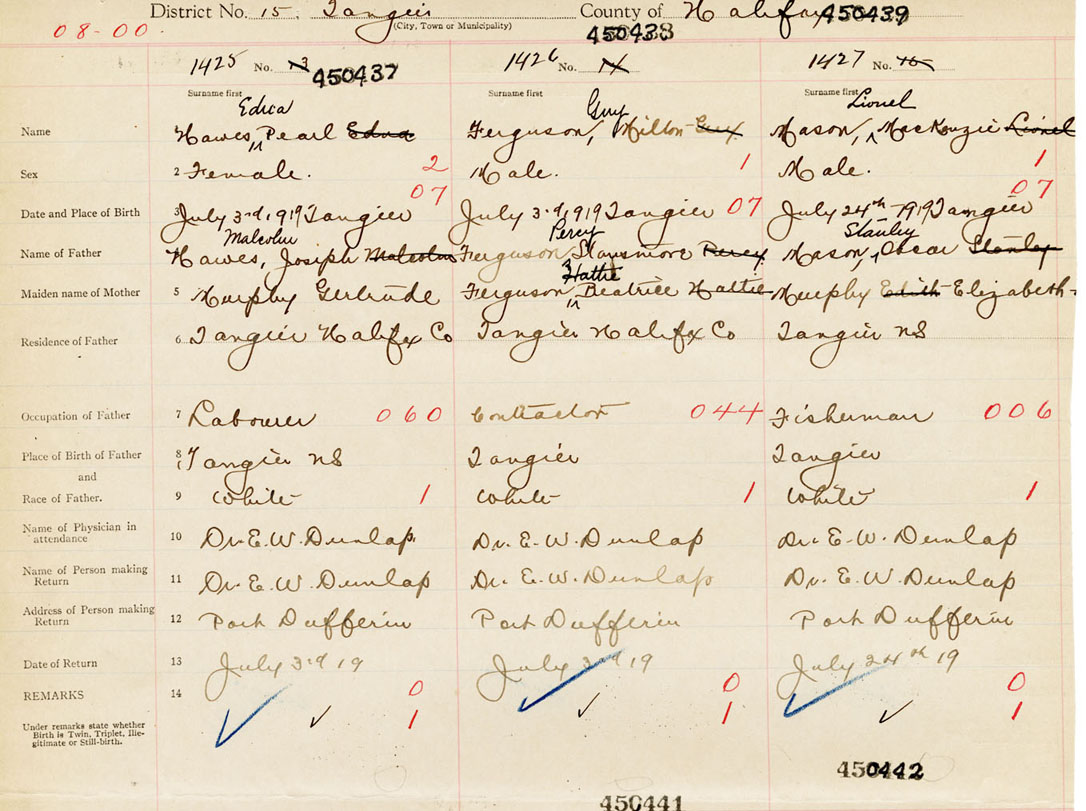 District No. 15. Tangier County of Halifax 450439
(City, Town or Municipality)
08-00. 450438
1425 No. 13 450437 1426 No. 14 1427 No. 15
Surname first Surname first Surname first
Edna Guy Lionel
Name Hawes, Pearl Edna Ferguson, Milton Guy Mason, MacKenzie Lionel
Sex 2 Female. 2 Male. 1 Male. 1
07 07
Date and Place of Birth 3 July 3rd, 1919 Tangier July 3rd, 1919 Tangier 07 July 24th 1919 Tangier
Malcolm Percy Stanley
Name of Father Hawes, Joseph Malcolm Ferguson Stansmore Percy Mason, Oscar Stanley
Hattie
Maiden name of Mother 5 Murphy Gertrude Ferguson, Beatrice Hattie Murphy Edith Elizabeth
Residence of Father 6 Tangier Halifax Co Tangier Halifax Co Tangier NS
Occupation of Father 7 Labourer 060 Contractor 044 Fisherman 006
Place of Birth of Father 8 Tangier NS Tangier Tangier
and
Race of Father. 9 White 1 White 1 White 1
Name of Physician in
attendance 10 Dr. E. W. Dunlap Dr. E. W. Dunlap Dr. E. W. Dunlap
Name of Person making
Return 11 Dr. E. W. Dunlap Dr. E. W. Dunlap Dr. E. W. Dunlap
Address of Person making
Return 12 Port Dufferin Port Dufferin Port Dufferin
Date of Return 13 July 3rd 19 July 3rd 19 July 24th 19
REMARKS 14 0 0 0
Under remarks state whether 1 1 1
Birth is Twin, Triplet, Ille-
gitimate or Still-birth.
450442
450441